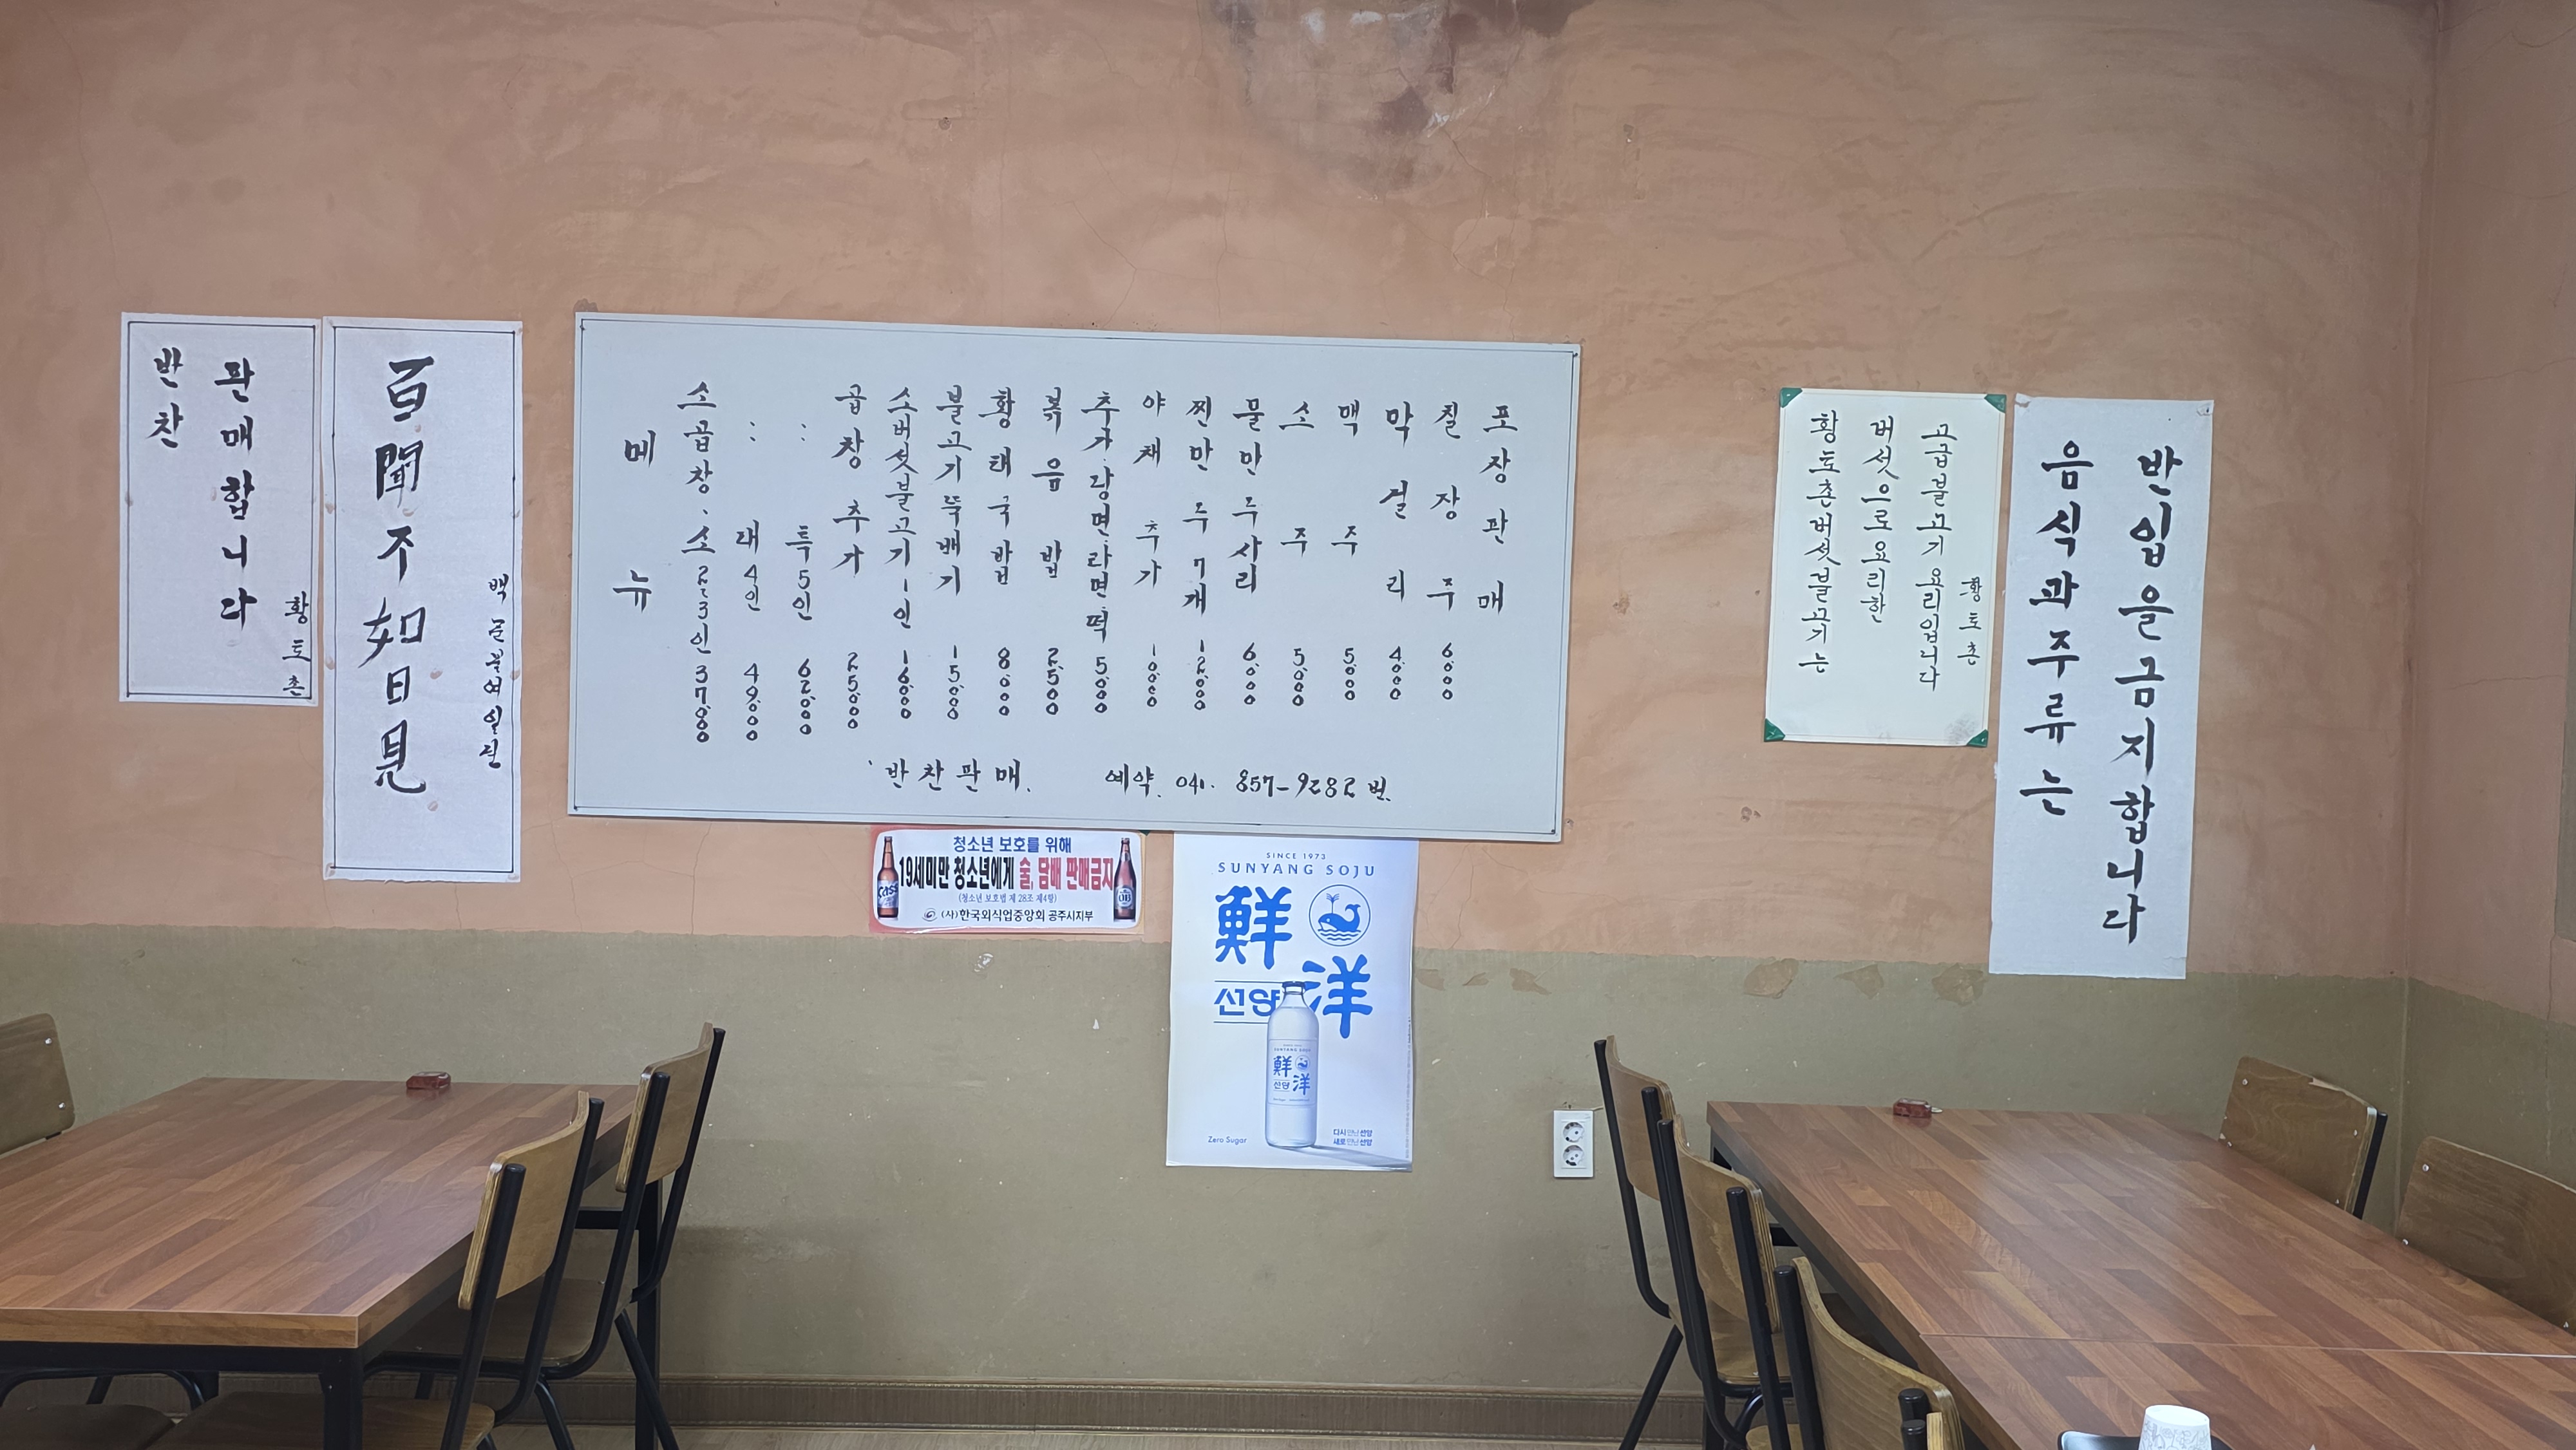 반찬
판매합니다
황토촌
百聞不如日見
백문불여일견
메뉴
소곱창、소 2~3인 37000
: 대 4인 49000
: 특 5인 62000
곱창추가 25000
소버섯불고기 1인 16000
불고기뚝배기 15000
황태국밥 8000
볶음밥 2500
추가당면.라면.떡 5000
야채추가 10000
찐만두 7개 12000
물만두사리 6000
소주 5000
맥주 5000
막걸리 4000
칠장주 6000
포장판매
반찬판매.
예약. 041. 857-9282 번.
청소년 보호를 위해
19세미만 청소년에게 술, 담배 판매금지
(청소년 보호법 제 28조 제4항)
(사)한국외식업중앙회 공주시지부
Cass
OB
SINCE 1973
SUNYANG SOJU
鮮
洋
선양
SUNYANG SOJU
鮮
선양 洋
Zero Sugar
다시 만난 선양
새로 만난 선양
황토촌버섯불고기는
버섯으로요리한
고급불고기 요리입니다
황토촌
음식과주류는
반입을금지합니다